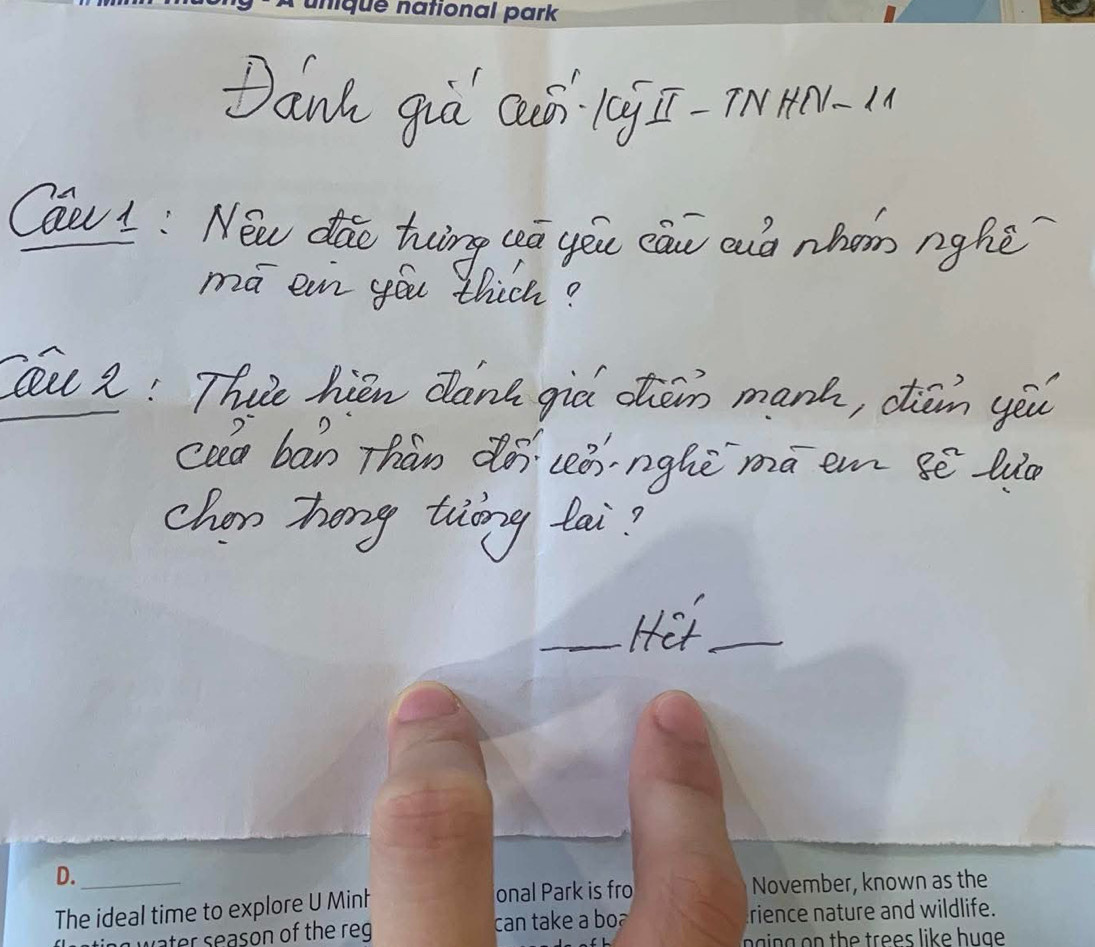 - A unique national park
Đánh giá cuối kỳ II - TNHN - 11
Câu 1 : Nêu đặc trưng và yêu cầu của nhóm nghề
mà em yêu thích ?
Câu 2 : Thực hiện đánh giá điểm mạnh, điểm yếu
của bản thân đối với nghề mà em sẽ lựa
chọn trong tương lai ?
— Hết —
D.
The ideal time to explore U Minh onal Park is fro November, known as the
water season of the reg can take a boa rience nature and wildlife.
on the trees like huge